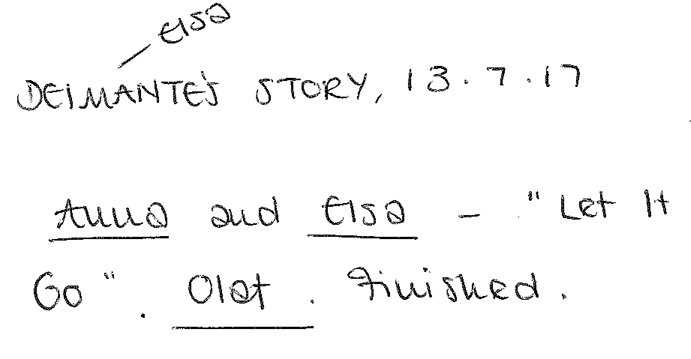 Elsa
DEIMANTE'S STORY, 13.7.17
Anna and Elsa - "Let It
Go". Olaf. Finished.